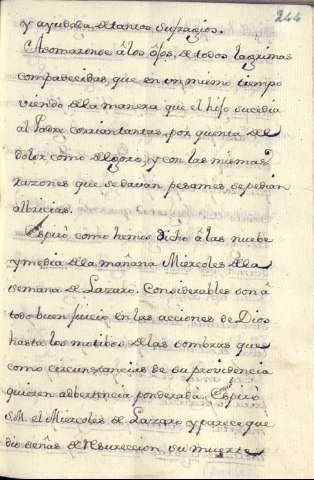 244
y ayudada de tantos sufragios.
Asomaronse â los ôjos, de todos lagrimas
compadecidas, que en un mismo tiempo
viendo de la manera que el hijo sucedia
al Padre corrian tantas, por quenta del
dolor como del gozo, y con las mismas
razones que se davan pesames, se pedian
albricias.
Espirò como hemos dicho â las nuebe
y media de la mañana Miércoles de la
semana de Lazaro. Considerables son â
todo buen juicio en las acciones de Dios
hasta los motibos de las sombras que
como circunstancias de su providencia
quieren adbertencia ponderada. Espirò
S.M. el Mièrcoles de Lazaro y parece que
diò señas de resureccion su muerte